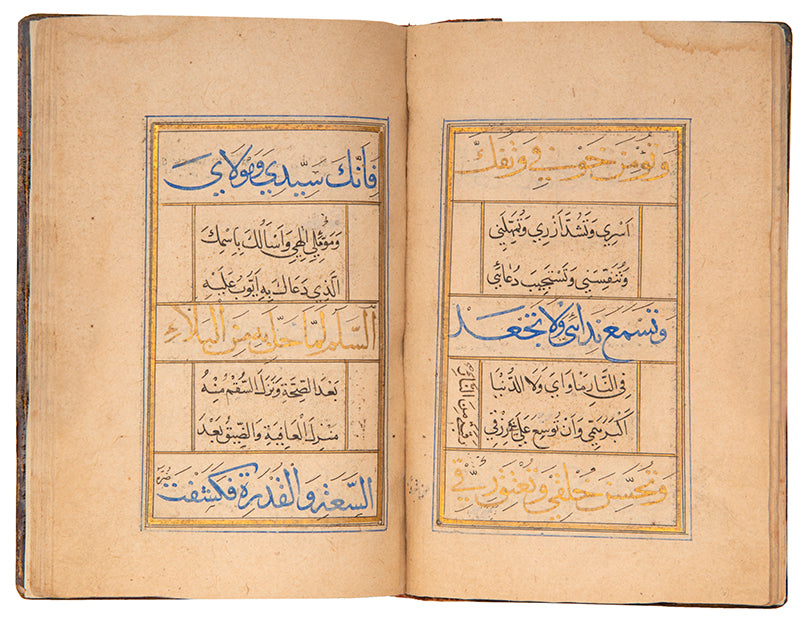 وتؤمن خوفي وتفك
اسري وتشد ازري وتمهلني
وتنفسني وتستجيب دعائي
وتسمع ندائي ولا تجعل
في النار ماواي ولا الدنيا
اكبر همي وان توسع علي رزقي
وتحسن خلقي وتعتق رقبتي
من النار
فانك سيدي ومولاي
ومؤملي الهي واسالك باسمك
الذي دعاك به ايوب عليه
السلم لما حل به من البلاء
بعد الصحة ونزل السقم منه
منزل العافية والضيق بعد
السعة والقدرة فكشفت